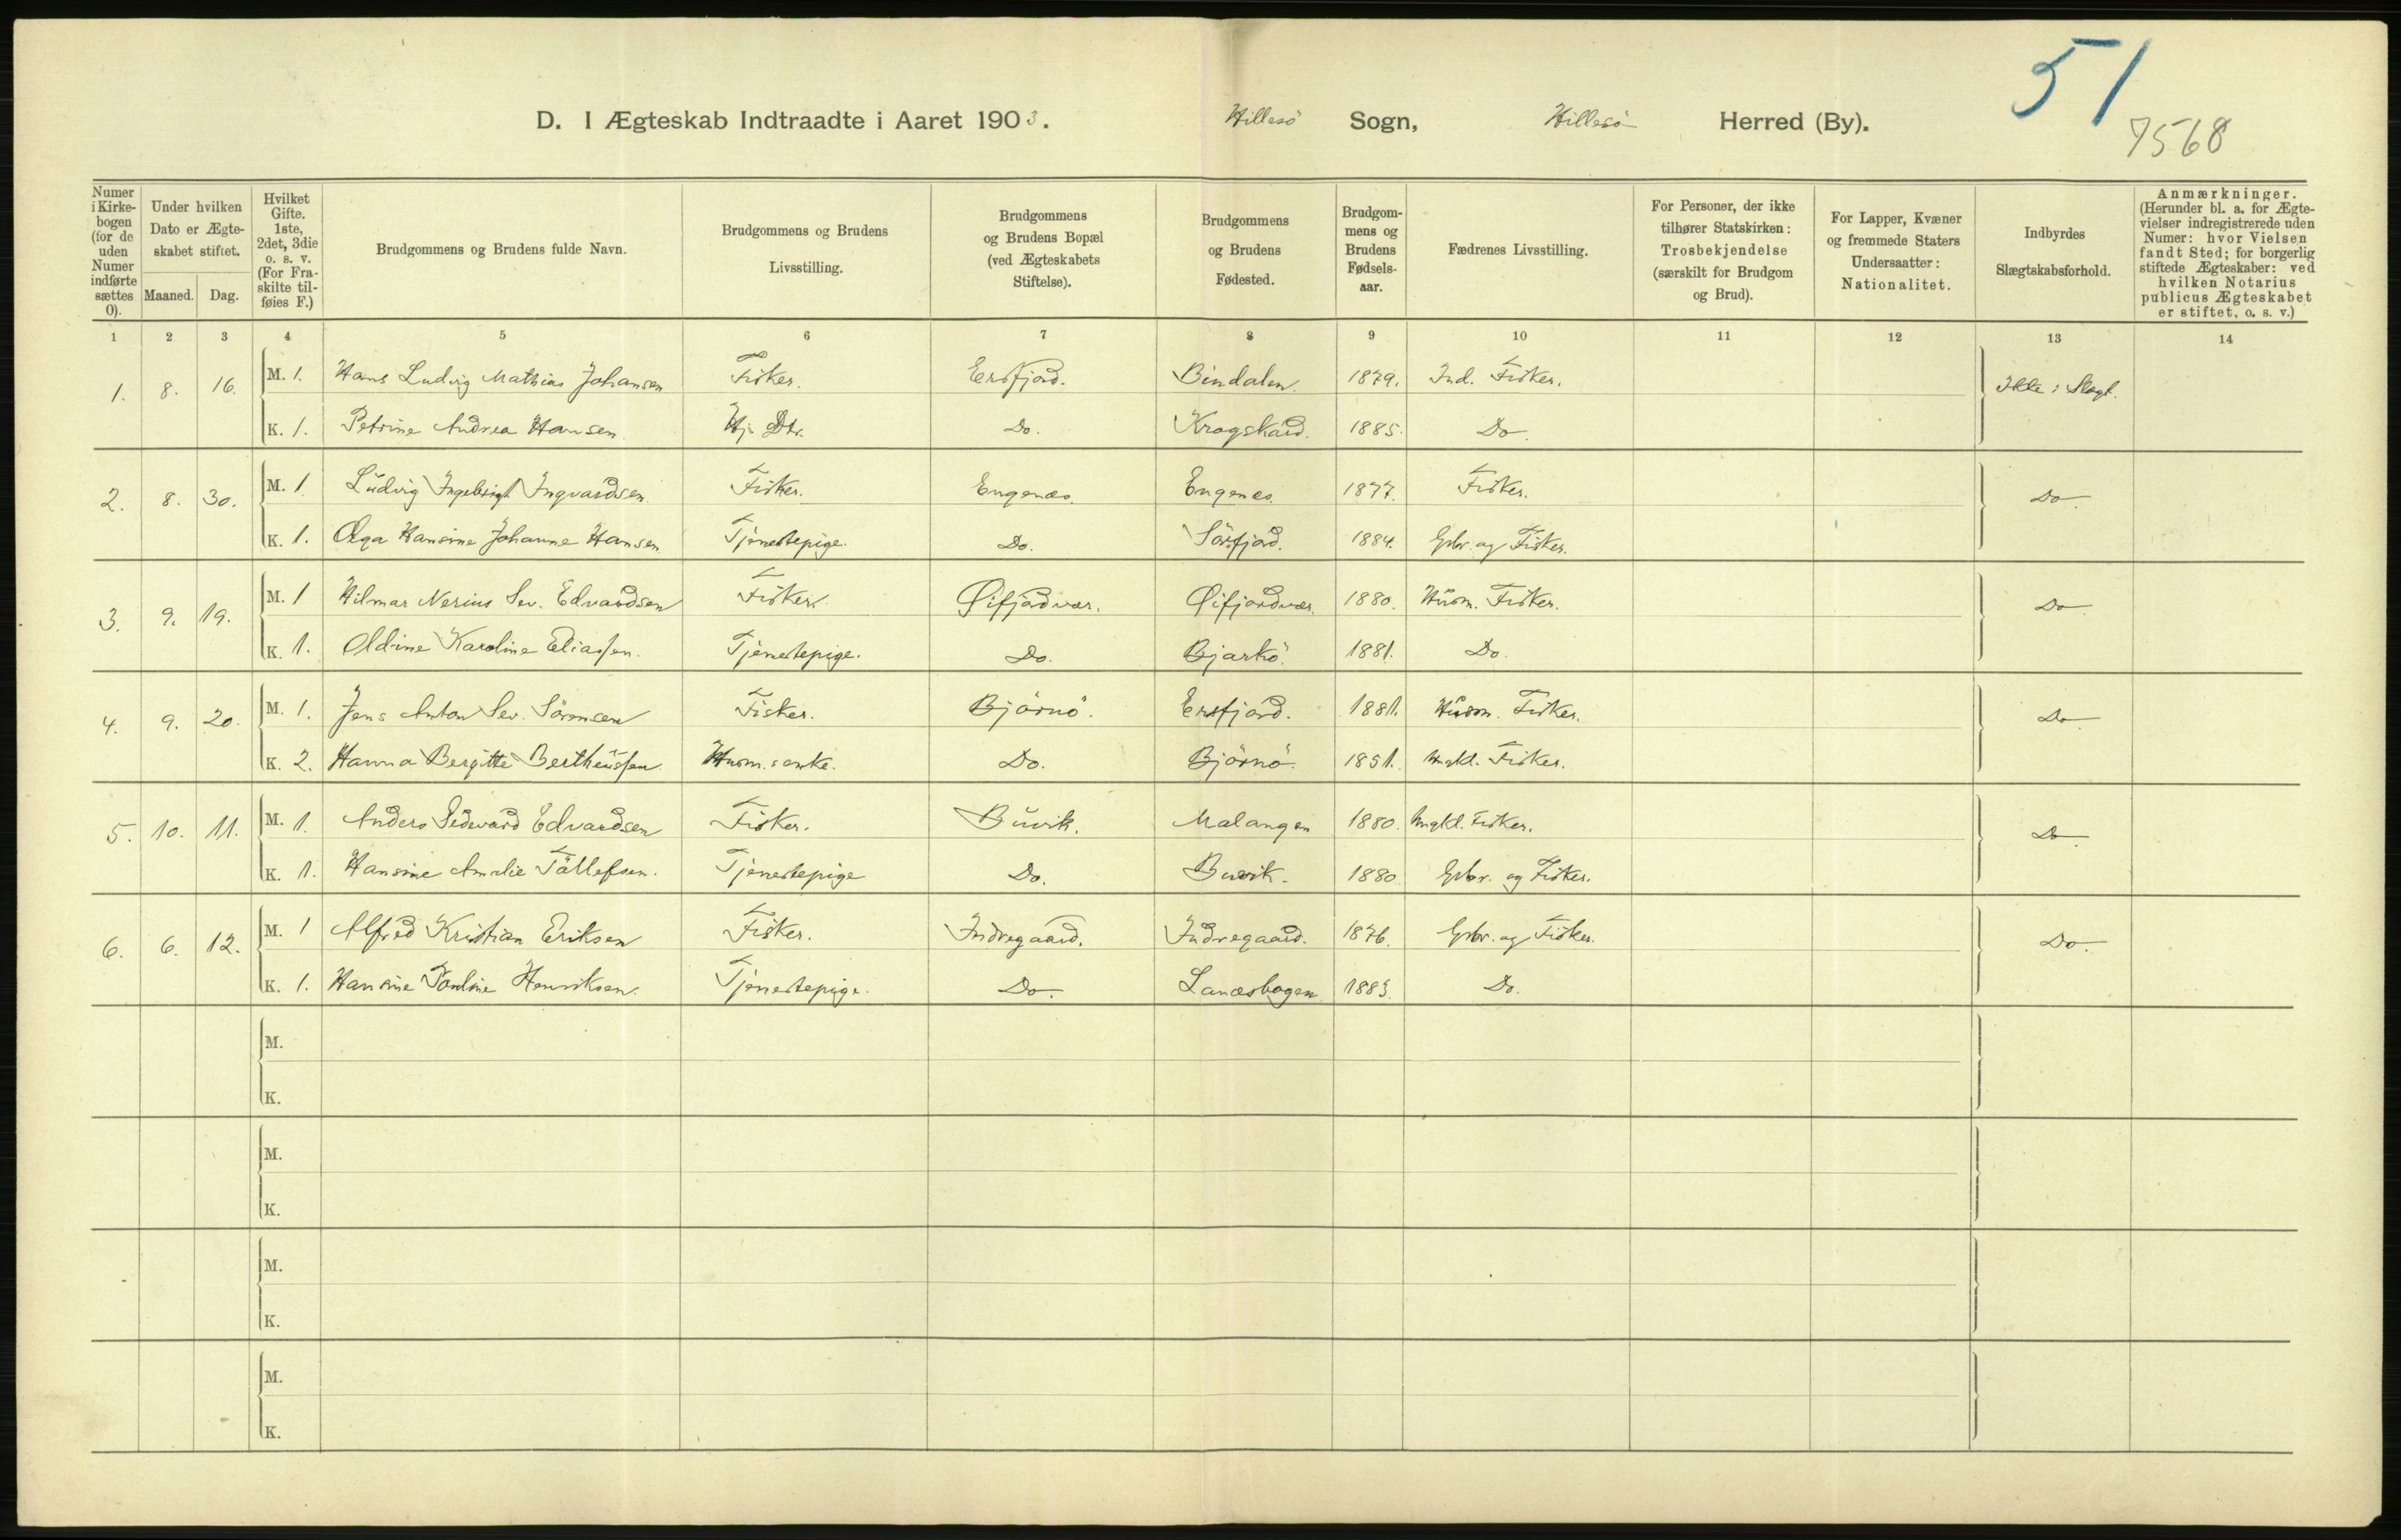 51
7568
D. I Ægteskab Indtraadte i Aaret 1903. Hillesö Sogn, Hillesö Herred (By).
Numer i Kirkebogen (for de uden Numer indførte sættes 0).
Under hvilken Dato er Ægteskabet stiftet. Maaned. Dag.
Hvilket Gifte. 1ste, 2det, 3die o. s. v. (For Fraskilte tilføies F.)
Brudgommens og Brudens fulde Navn.
Brudgommens og Brudens Livsstilling.
Brudgommens og Brudens Bopæl (ved Ægteskabets Stiftelse).
Brudgommens og Brudens Fødested.
Brudgommens og Brudens Fødselsaar.
Fædrenes Livsstilling.
For Personer, der ikke tilhører Statskirken: Trosbekjendelse (særskilt for Brudgom og Brud).
For Lapper, Kvæner og fremmede Staters Undersaatter: Nationalitet.
Indbyrdes Slægtskabsforhold.
Anmærkninger. (Herunder bl. a. for Ægtevielser indregistrerede uden Numer: hvor Vielsen fandt Sted; for borgerlig stiftede Ægteskaber: ved hvilken Notarius publicus Ægteskabet er stiftet, o. s. v.)
1 2 3 4 5 6 7 8 9 10 11 12 13 14
1. 8. 16. M. 1. Hans Ludvig Mathias Johansen Fisker. Ersfjord. Bindalen. 1879. Ind. Fisker. Ikke i Slægt.
K. 1. Petrine Andrea Hansen Hj. Dtr. Do. Krogskard. 1885. Do.
2. 8. 30. M. 1 Ludvig Ingebrigt Ingvardsen Fisker. Engenæs. Engenes. 1877. Fisker. Do.
K. 1. Olga Hansine Johanne Hansen Tjenestepige. Do. Sörfjord. 1884. Gbr. og Fisker.
3. 9. 19. M. 1 Hilmar Nerius Sev. Edvardsen Fisker. Øifjordvær. Øifjordvær. 1880. Husm. Fisker. Do
K. 1. Oldine Karoline Eliassen. Tjenestepige. Do. Bjarkö. 1881. Do.
4. 9. 20. M. 1. Jens Anton Sev. Sörensen Fisker. Björnö. Ersfjord. 1881. Husm. Fisker. Do
K. 2. Hanna Bergitte Bertheussen Husm. enke. Do. Björnö. 1851. Fisker.
5. 10. 11. M. 1. Anders Edvardsen Fisker. Buvik. Malangen 1880. Fisker. Do.
K. 1. Hansine Amalie Tollefsen. Tjenestepige Do. Buvik. 1880 Gbr. og Fisker.
6. 6. 12. M. 1 Alfred Kristian Eriksen Fisker. Indregaard. Indregaard. 1876. Gbr. og Fisker. Do.
K. 1. Hansine Henriksen. Tjenestepige. Do. Lanæsbogen 1883. Do.
M.
K.
M.
K.
M.
K.
M.
K.